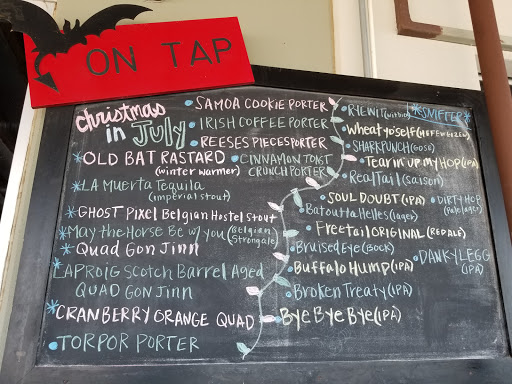 ON TAP
Christmas
in July
• SAMOA COOKIE PORTER
• IRISH COFFEE PORTER
• REESES PIECES PORTER
*OLD BAT RASTARD
(winter warmer)
• CINNAMON TOAST
CRUNCH PORTER
*LA MUERTA TEQUILA
(imperial stout)
*GHOST PIXEL Belgian Hostel stout
*MAY THE HORSE BE W/ YOU (Belgian
Strong ale)
*QUAD GON JINN
*LAPROIG SCOTCH BARREL AGED
QUAD GON JINN
*CRANBERRY ORANGE QUAD
• TORPOR PORTER
• RYEWIT (witbier)
*SNIFTER*
• Wheat yoself (HEFEWEIZEN)
• SHARKPUNCH (GOSE)
• Tearin up my HOP (IPA)
• Real Tail (saison)
• SOUL DOUBT (IPA)
• DIRTY HOP
(Pale lager)
• Batoutta Helles (lager)
• Freetail ORIGINAL (RED ALE)
• Bruised Eye (BOCK)
• DANKYLEGG
(IPA)
• BUFFALO HUMP (IPA)
• Broken Treaty (IPA)
• Bye Bye Bye (IPA)